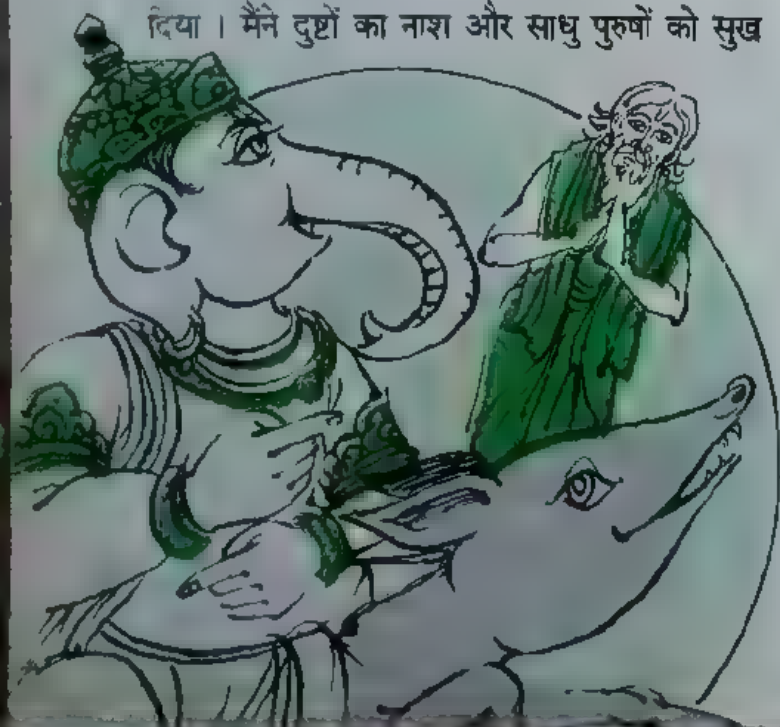 दिया । मैंने दुष्टों का नाश और साधु पुरुषों को सुख